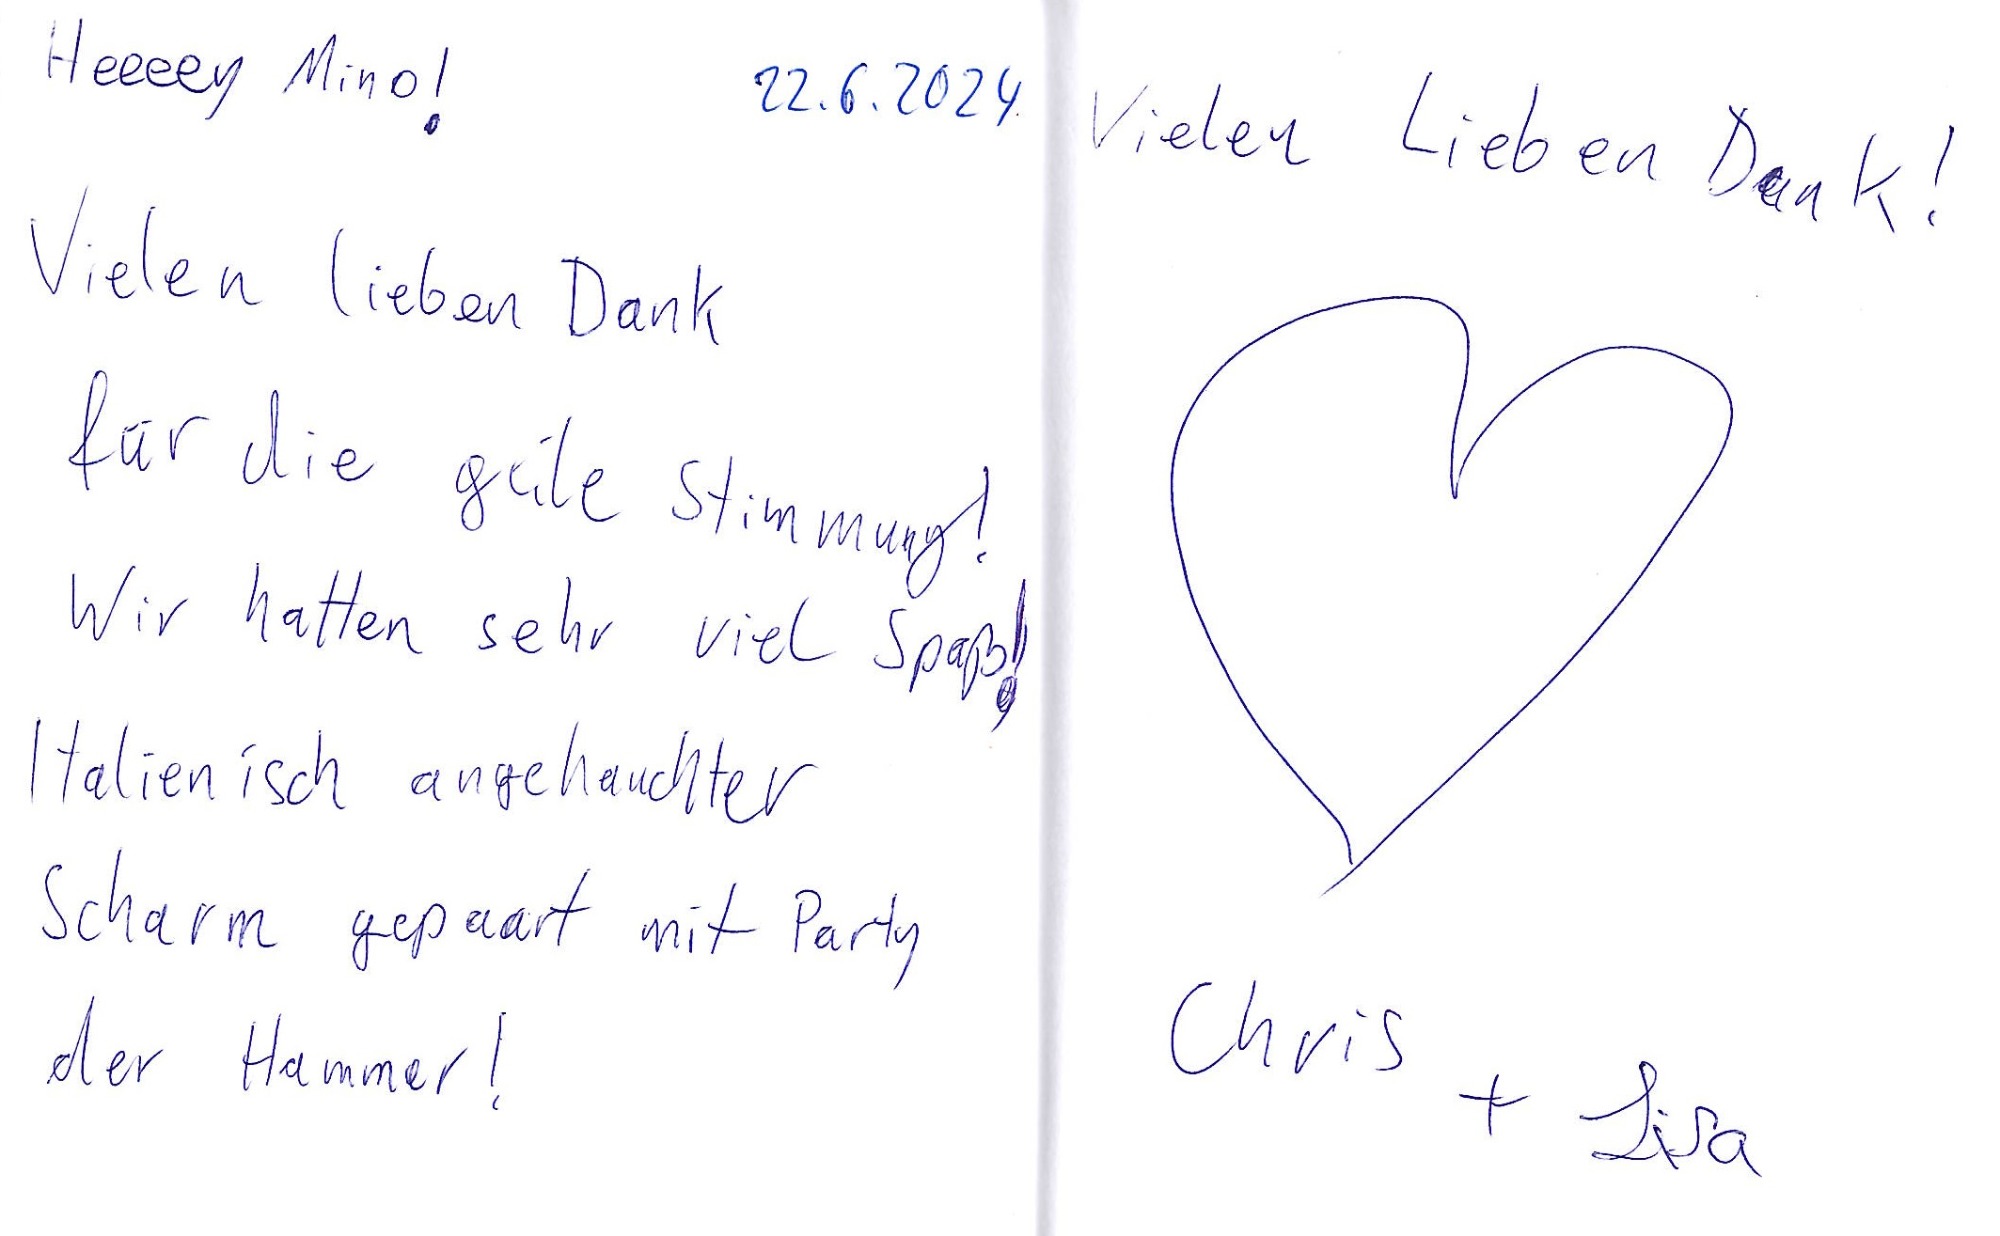 Heeeey Mino! 22.6.2024
Vielen lieben Dank
für die geile Stimmung!
Wir hatten sehr viel Spaß!
Italienisch angehauchter
Scharm gepaart mit Party
der Hammer!
Vielen Lieben Dank!
Chris + Lisa